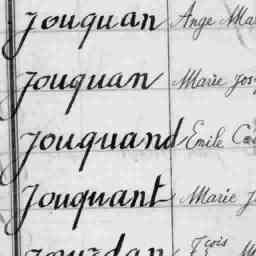 Jouquan Ange Ma
Jouquan Marie Jos
Jouquand Emile
Jouquant Marie J
Jourdan Fçois